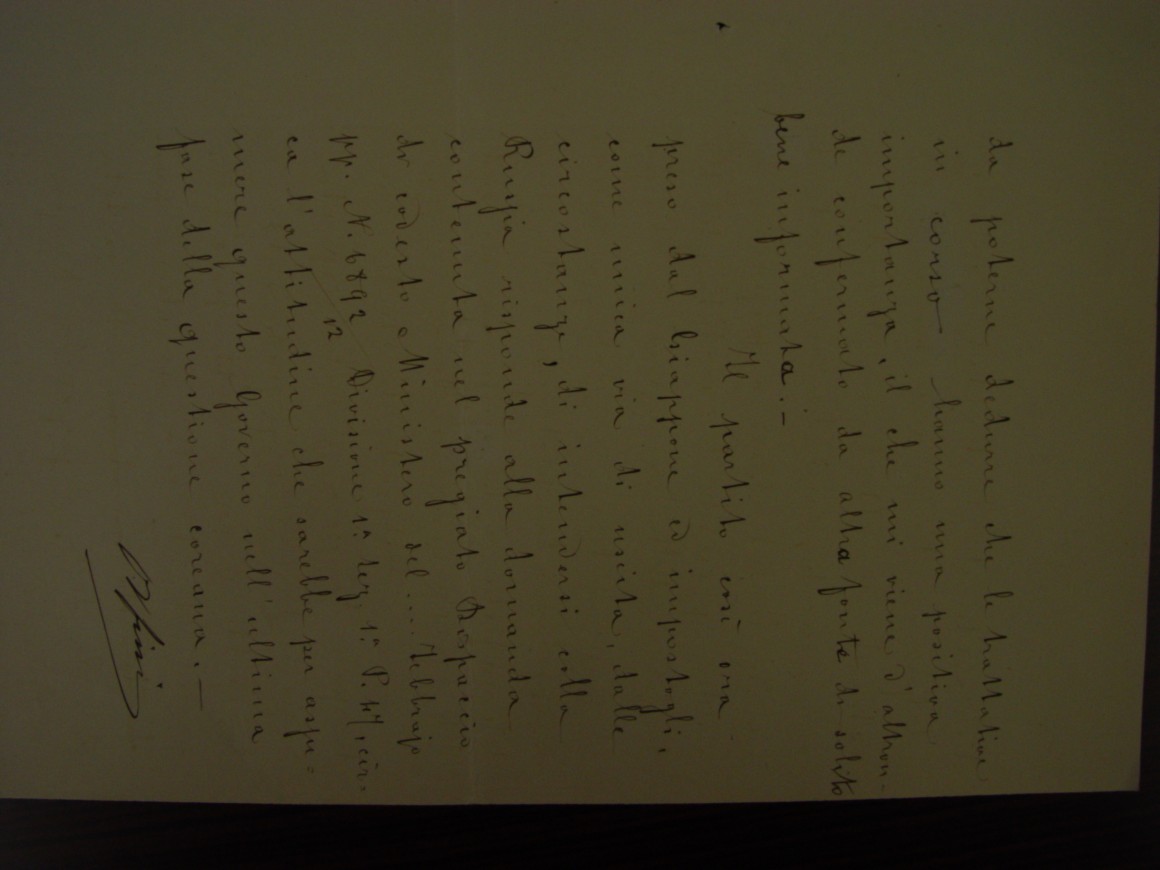 da poterne dedurre che le trattative
in corso hanno una positiva
importanza, il che mi viene d'altron-
de confermato da altra fonte di solito
bene informata. –
Il partito così ora
preso dal Giappone ed impostogli,
come unica via di uscita, dalle
circostanze, di intendersi colla
Russia risponde alla domanda
contenuta nel pregiato Dispaccio
di codesto Ministero del .... Febbrajo
pp. N. 6892/12 Divisione 1ª Sez. 1ª P. 47, cir-
ca l'attitudine che sarebbe per assu-
mere questo Governo nell'ultima
fase della questione coreana. –